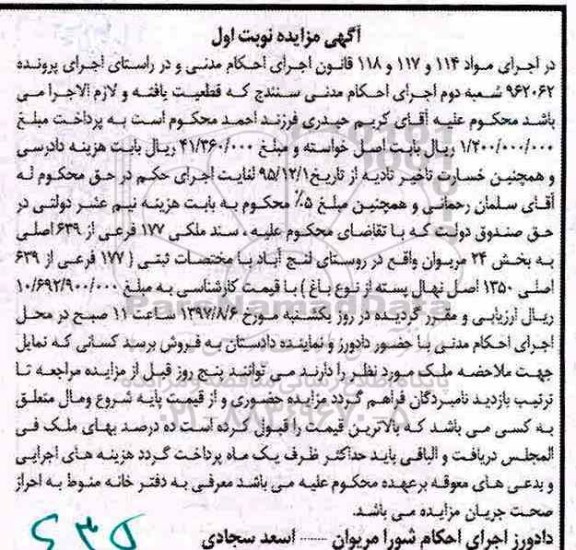 آگهی مزایده نوبت اول
در اجرای مواد ۱۱۴ و ۱۱۷ و ۱۱۸ قانون اجرای احکام مدنی و در راستای اجرای پرونده
۹۶۲۰۶۲ شعبه دوم اجرای احکام مدنی سنندج که قطعیت یافته و لازم الاجرا می
باشد محکوم علیه آقای کریم حیدری فرزند احمد محکوم است به پرداخت مبلغ
۱/۲۰۰/۰۰۰/۰۰۰ ریال بابت اصل خواسته و مبلغ ۴۱/۳۶۰/۰۰۰ ریال بابت هزینه دادرسی
و همچنین خسارت تاخیر تادیه از تاریخ ۹۵/۱۲/۱ لغایت اجرای حکم در حق محکوم له
آقای سلمان رحمانی و همچنین مبلغ ۵٪ محکوم به بابت هزینه نیم عشر دولتی در
حق صندوق دولت که با تقاضای محکوم علیه ، سند ملکی ۱۷۷ فرعی از ۶۳۹ اصلی
به بخش ۲۴ مریوان واقع در روستای لنج آباد با مختصات ثبتی ( ۱۷۷ فرعی از ۶۳۹
اصلی ۱۳۵۰ اصل نهال پسته از نوع باغ ) با قیمت کارشناسی به مبلغ ۱۰/۶۹۲/۹۰۰/۰۰۰
ریال ارزیابی و مقرر گردیده در روز یکشنبه مورخ ۱۳۹۷/۸/۶ ساعت ۱۱ صبح در محل
اجرای احکام مدنی با حضور دادورز و نماینده دادستان به فروش برسد کسانی که تمایل
جهت ملاحضه ملک مورد نظر را دارند می توانند پنج روز قبل از مزایده مراجعه تا
ترتیب بازدید نامبردگان فراهم گردد مزایده حضوری و از قیمت پایه شروع ومال متعلق
به کسی می باشد که بالاترین قیمت را قبول کرده است ده درصد بهای ملک فی
المجلس دریافت و الباقی باید حداکثر ظرف یک ماه پرداخت گردد هزینه های اجرایی
و بدعی های معوقه برعهده محکوم علیه می باشد معرفی به دفتر خانه منوط به احراز
صحت جریان مزایده می باشد.
دادورز اجرای احکام شورا مریوان ----- اسعد سجادی